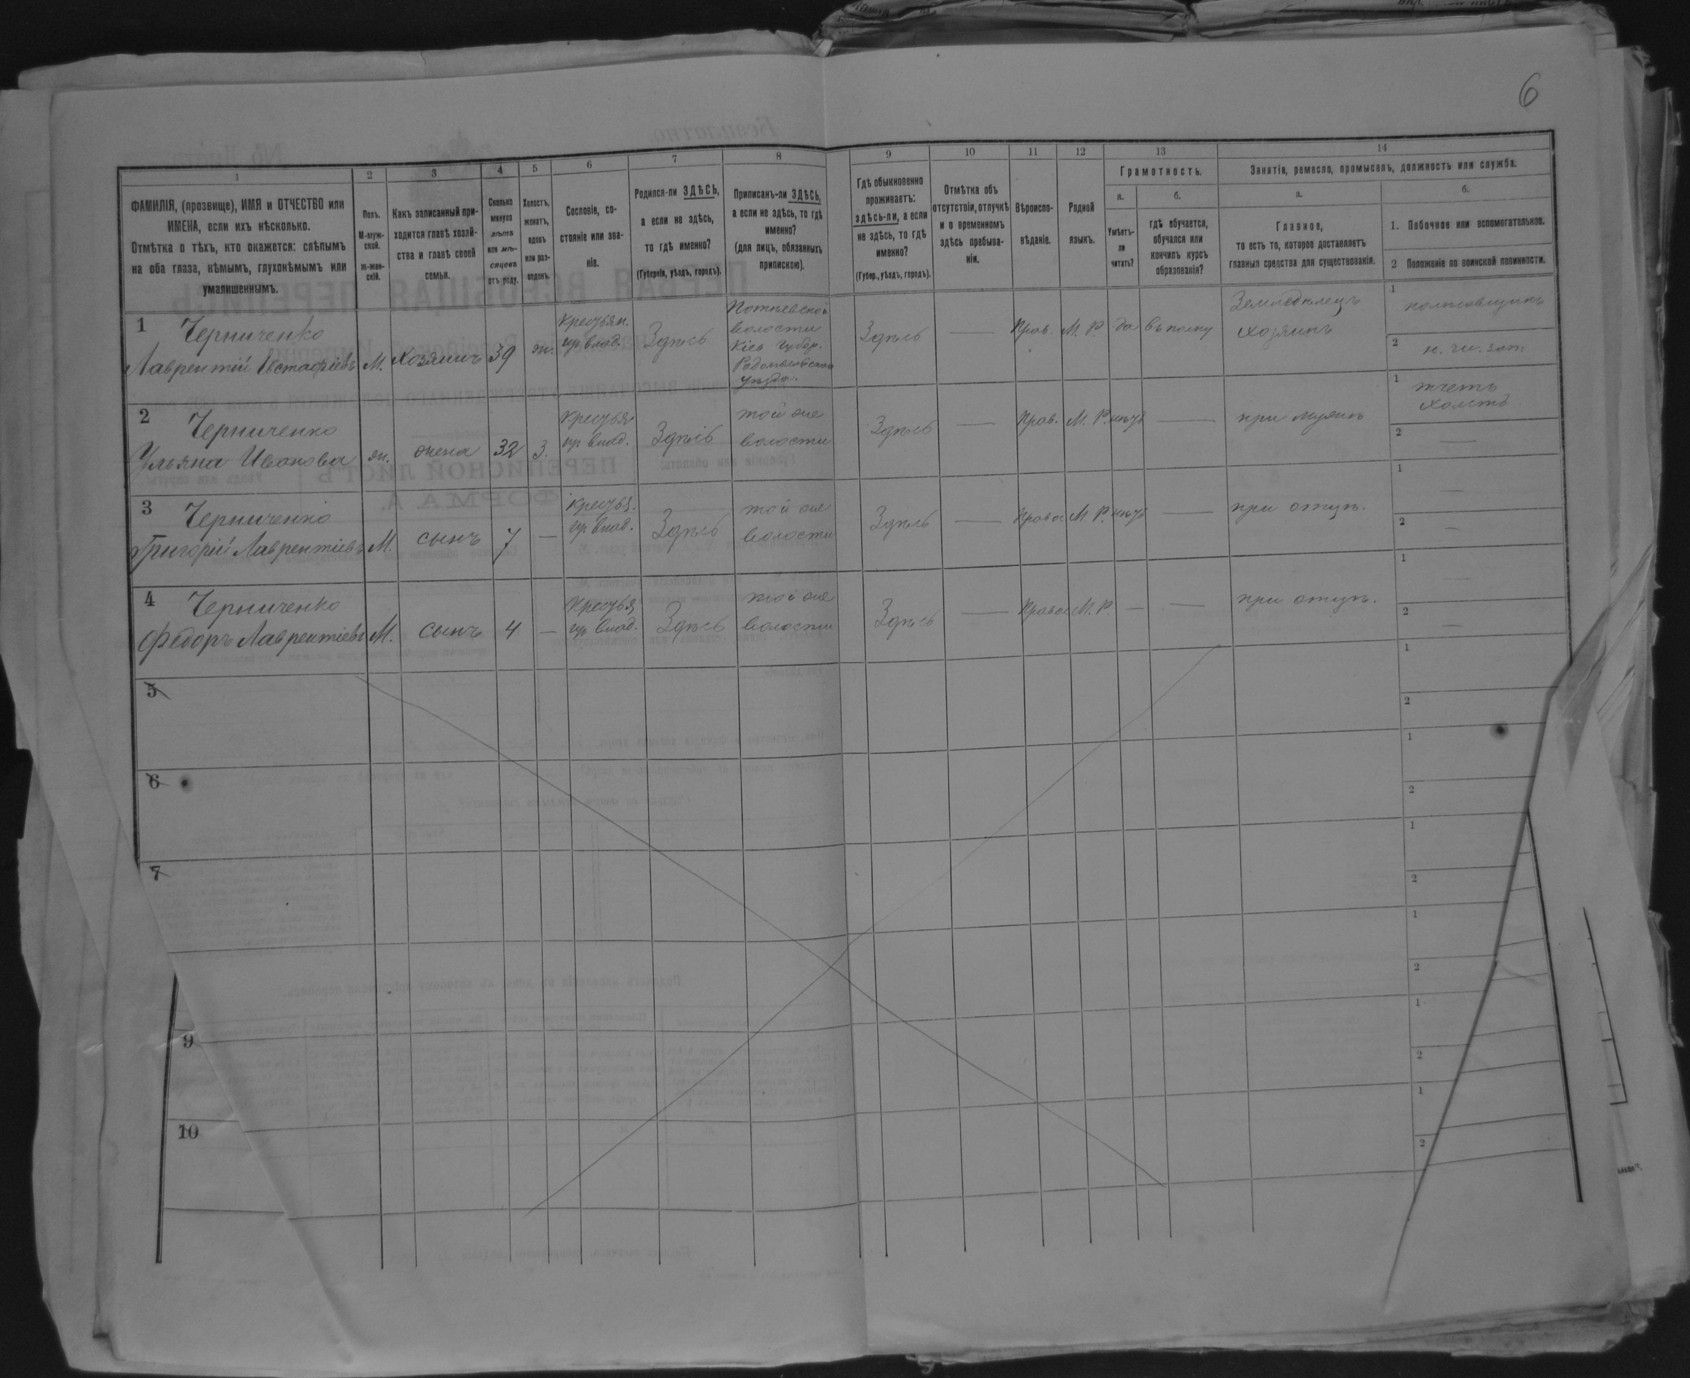 6
1
2
3
4
5
6
7
8
9
10
11
12
13
14
ФАМИЛІЯ, (прозвище), ИМЯ и ОТЧЕСТВО или
ИМЕНА, если ихъ нѣсколько.
Отмѣтка о тѣхъ, кто окажется: слѣпымъ
на оба глаза, нѣмымъ, глухонѣмымъ или
умалишеннымъ.
Полъ.
М-муж-
ской.
ж-жен-
скій.
Какъ записанный при-
ходится главѣ хозяй-
ства и главѣ своей
семьи.
Сколько
минуло
лѣтъ
или мѣ-
сяцевъ
отъ роду.
Холостъ,
женатъ,
вдовъ
или раз-
веденъ.
Сословіе, со-
стояніе или зва-
ніе.
Родился-ли ЗДѢСЬ,
а если не здѣсь,
то гдѣ именно?
(Губернія, уѣздъ, городъ).
Приписанъ-ли ЗДѢСЬ,
а если не здѣсь, то гдѣ
именно?
(для лицъ, обязанныхъ
припискою).
Гдѣ обыкновенно
проживаетъ:
здѣсь-ли, а если
не здѣсь, то гдѣ
именно?
(Губер., уѣздъ, городъ).
Отмѣтка объ
отсутствіи, отлучкѣ
и о временномъ
здѣсь пребыва-
ніи.
Вѣроиспо-
вѣданіе.
Родной
языкъ.
Грамотность.
а.
Умѣетъ-
ли
читать?
б.
Гдѣ обучается,
обучался или
кончилъ курсъ
образованія?
Занятія, ремесло, промыселъ, должность или служба.
а.
Главное,
то есть то, которое доставляетъ
главныя средства для существованія.
б.
1. Побочное или вспомогательное.
2 Положеніе по воинской повинности.
1 Черниченко
Лаврентій Евстафіевъ М. хозяинъ 39 ж.
Крестьян.
гр. влад.
Здѣсь
волости
Кіев. губер.
уѣзда.
Здѣсь — Прав. М. Р. да въ полку
Земледѣлецъ
хозяинъ
1
2
2 Черниченко
Ульяна Иванова ж. жена 32 З.
Крестья
гр. влад.
Здѣсь
той же
волости
Здѣсь — Прав. М. Р. нѣтъ — при мужѣ
1 ткетъ
холстъ
2 —
3 Черниченко
Григорій Лаврентіевъ М. сынъ 7 —
Крестья.
гр. влад.
Здѣсь
той же
волости
Здѣсь — Правос М. Р. нѣтъ — при отцѣ.
1 —
2 —
4 Черниченко
Федоръ Лаврентіевъ М. сынъ 4 —
Крестья
гр. влад.
Здѣсь
той же
волости
Здѣсь — Правос М. Р. — — при отцѣ.
1 —
2 —
5
1
2
6
1
2
7
1
2
1
2
9
1
2
10
1
2